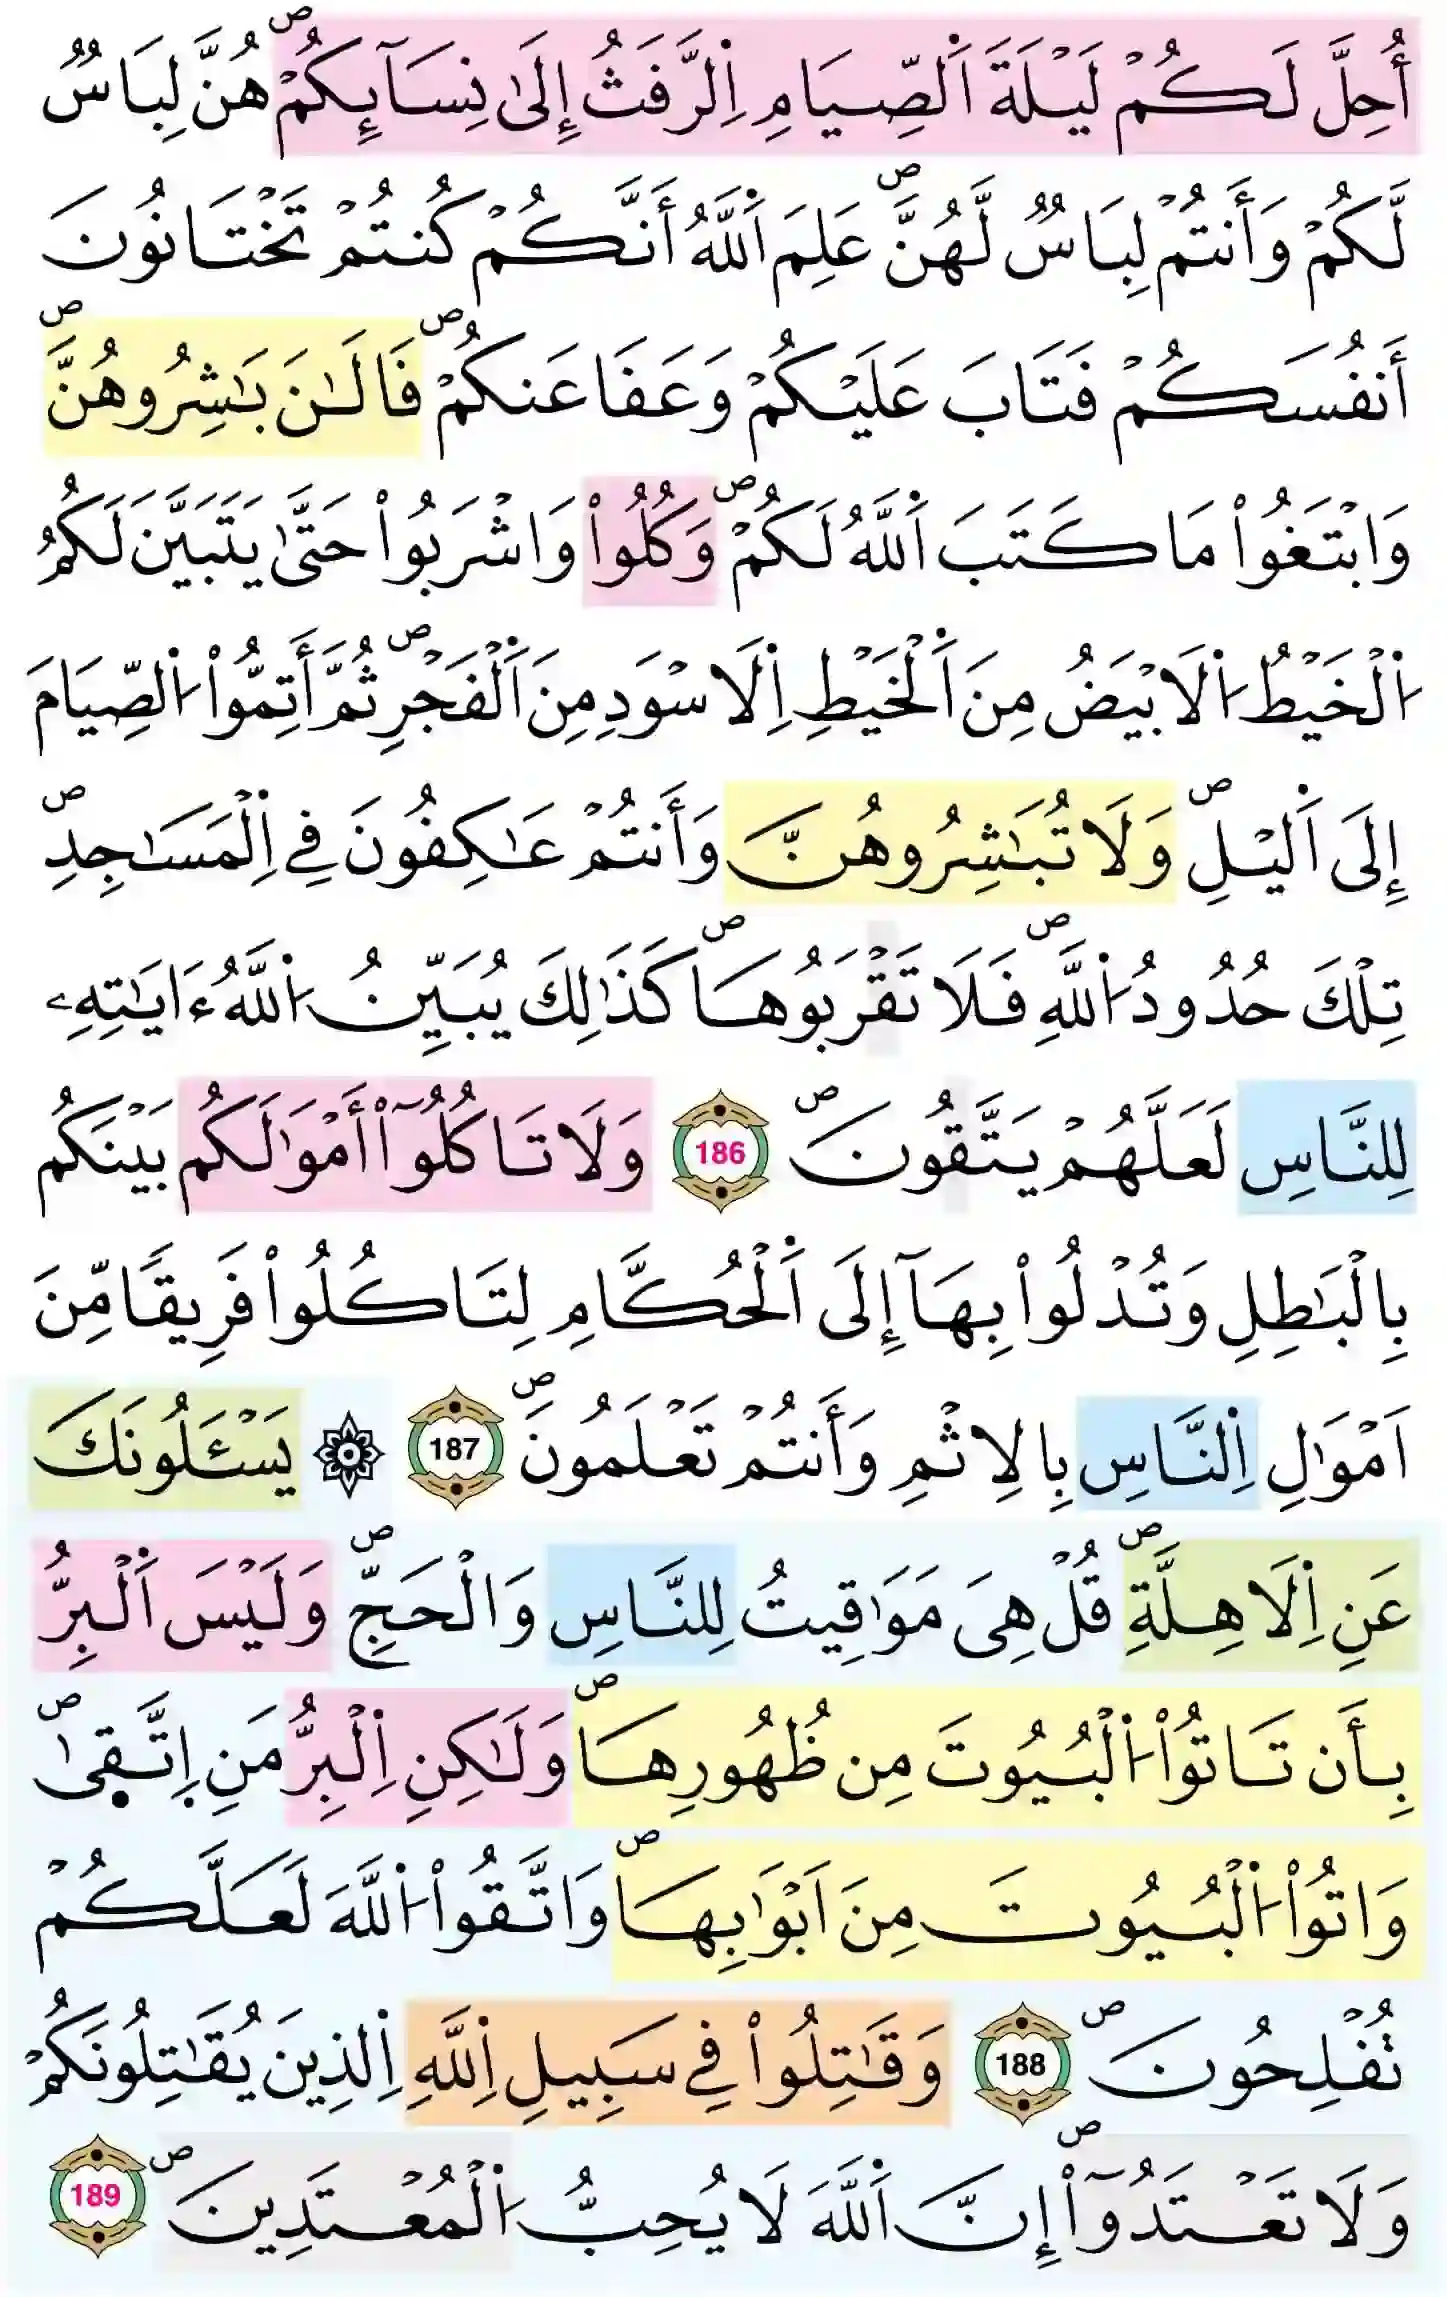 أُحِلَّ لَكُمْ لَيْلَةَ اَ۬لصِّيَامِ اِ۬لرَّفَثُ إِلَىٰ نِسَآئِكُمْۖ هُنَّ لِبَاسٞ
لَّكُمْ وَأَنتُمْ لِبَاسٞ لَّهُنَّۖ عَلِمَ اَ۬للَّهُ أَنَّكُمْ كُنتُمْ تَخْتَانُونَ
أَنفُسَكُمْ فَتَابَ عَلَيْكُمْ وَعَفَا عَنكُمْۖ فَالَٰنَ بَٰشِرُوهُنَّۖ
وَابْتَغُواْ مَا كَتَبَ اَ۬للَّهُ لَكُمْۖ وَكُلُواْ وَاشْرَبُواْ حَتَّىٰ يَتَبَيَّنَ لَكُمُ
اُ۬لْخَيْطُ اُ۬لَابْيَضُ مِنَ اَ۬لْخَيْطِ اِ۬لَاسْوَدِ مِنَ اَ۬لْفَجْرِۖ ثُمَّ أَتِمُّواْ اُ۬لصِّيَامَ
إِلَى اَ۬ليْلِۖ وَلَا تُبَٰشِرُوهُنَّ وَأَنتُمْ عَٰكِفُونَ فِے اِ۬لْمَسَٰجِدِۖ
تِلْكَ حُدُودُ اُ۬للَّهِۖ فَلَا تَقْرَبُوهَاۖ كَذَٰلِكَ يُبَيِّنُ اُ۬للَّهُ ءَايَٰتِهِۦ
لِلنَّاسِ لَعَلَّهُمْ يَتَّقُونَۖ 186 وَلَا تَاكُلُوٓاْ أَمْوَٰلَكُم بَيْنَكُم
بِالْبَٰطِلِ وَتُدْلُواْ بِهَآ إِلَى اَ۬لْحُكَّامِ لِتَاكُلُواْ فَرِيقاٗ مِّنَ
اَمْوَٰلِ اِ۬لنَّاسِ بِالِاثْمِ وَأَنتُمْ تَعْلَمُونَۖ 187 ۞ يَسْـَٔلُونَكَ
عَنِ اِ۬لَاهِلَّةِۖ قُلْ هِيَ مَوَٰقِيتُ لِلنَّاسِ وَالْحَجِّۖ وَلَيْسَ اَ۬لْبِرُّ
بِأَن تَاتُواْ اُ۬لْبُيُوتَ مِن ظُهُورِهَاۖ وَلَٰكِنِ اِ۬لْبِرُّ مَنِ اِ۪تَّق۪ىٰۖ
وَاتُواْ اُ۬لْبُيُوتَ مِنَ اَبْوَٰبِهَاۖ وَاتَّقُواْ اُ۬للَّهَ لَعَلَّكُمْ
تُفْلِحُونَۖ 188 وَقَٰتِلُواْ فِے سَبِيلِ اِ۬للَّهِ اِ۬لذِينَ يُقَٰتِلُونَكُمْ
وَلَا تَعْتَدُوٓاْۖ إِنَّ اَ۬للَّهَ لَا يُحِبُّ اُ۬لْمُعْتَدِينَۖ 189